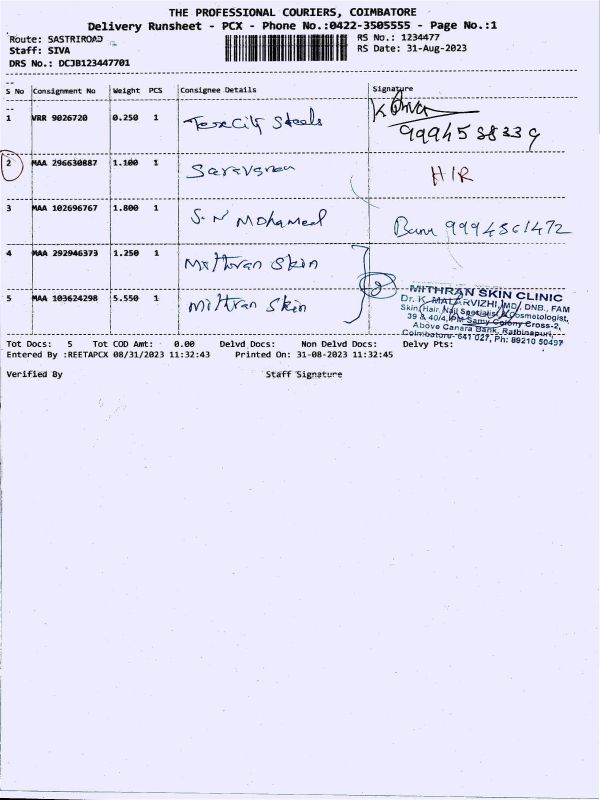 THE PROFESSIONAL COURIERS, COIMBATORE
Delivery Runsheet - PCX - Phone No.:0422-3505555 - Page No.:1
Route: SASTRIROAD
RS No.: 1234477
Staff: SIVA
RS Date: 31-Aug-2023
DRS No.: DCJB123447701
S No Consignment No Weight PCS Consignee Details Signature
1 VRR 9026720 0.250 1 Steels K
2 MAA 296630887 1.100 1 Saravanan H/R
3 MAA 102696767 1.800 1 S.N Mohamed 9994561472
4 MAA 292946373 1.250 1 Mithran Skin
5 MAA 103624298 5.550 1 Mithran Skin
MITHRAN SKIN CLINIC
Dr. K. MALARVIZHI, MD, DNB., FAM
Skin, Hair, Nail Specialist, Cosmetologist,
39 & 40/4, PM Samy Colony Cross-2,
Above Canara Bank, Rathinapuri,
Coimbatore- 641 027, Ph: 89210 50497
Tot Docs: 5 Tot COD Amt: 0.00 Delvd Docs: Non Delvd Docs: Delvy Pts:
Entered By :REETAPCX 08/31/2023 11:32:43 Printed On: 31-08-2023 11:32:45
Verified By Staff Signature